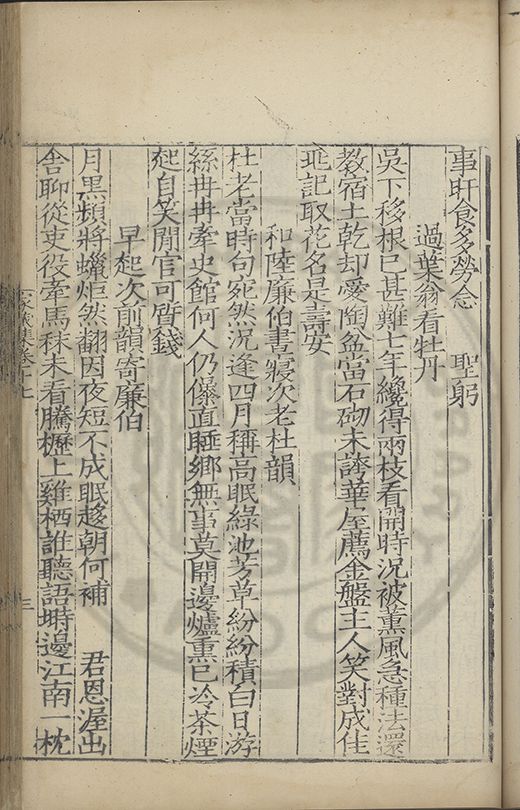 事旰食多勞念　聖躬
過葉翁看牡丹
吳下移根已甚難七年纔得兩枝看開時況被薰風急種法還
教宿土乾却愛陶盆當石砌未誇華屋薦金盤主人笑對成佳
兆記取花名是壽安
和陸廉伯晝寢次老杜韻
杜老當時句宛然況逢四月稱高眠綠池芳草紛紛積白日游
絲冉冉牽史館何人仍儤直睡鄉無事莫開邊爐熏已冷茶煙
起自笑閒官可㡯錢
早起次前韻寄廉伯
月黑頻將蠟炬然翻因夜短不成眠趍朝何補　君恩渥出
舍聊從吏役牽馬秣未看騰櫪上雞栖誰聽語塒邊江南一枕
家藏集卷十七
三